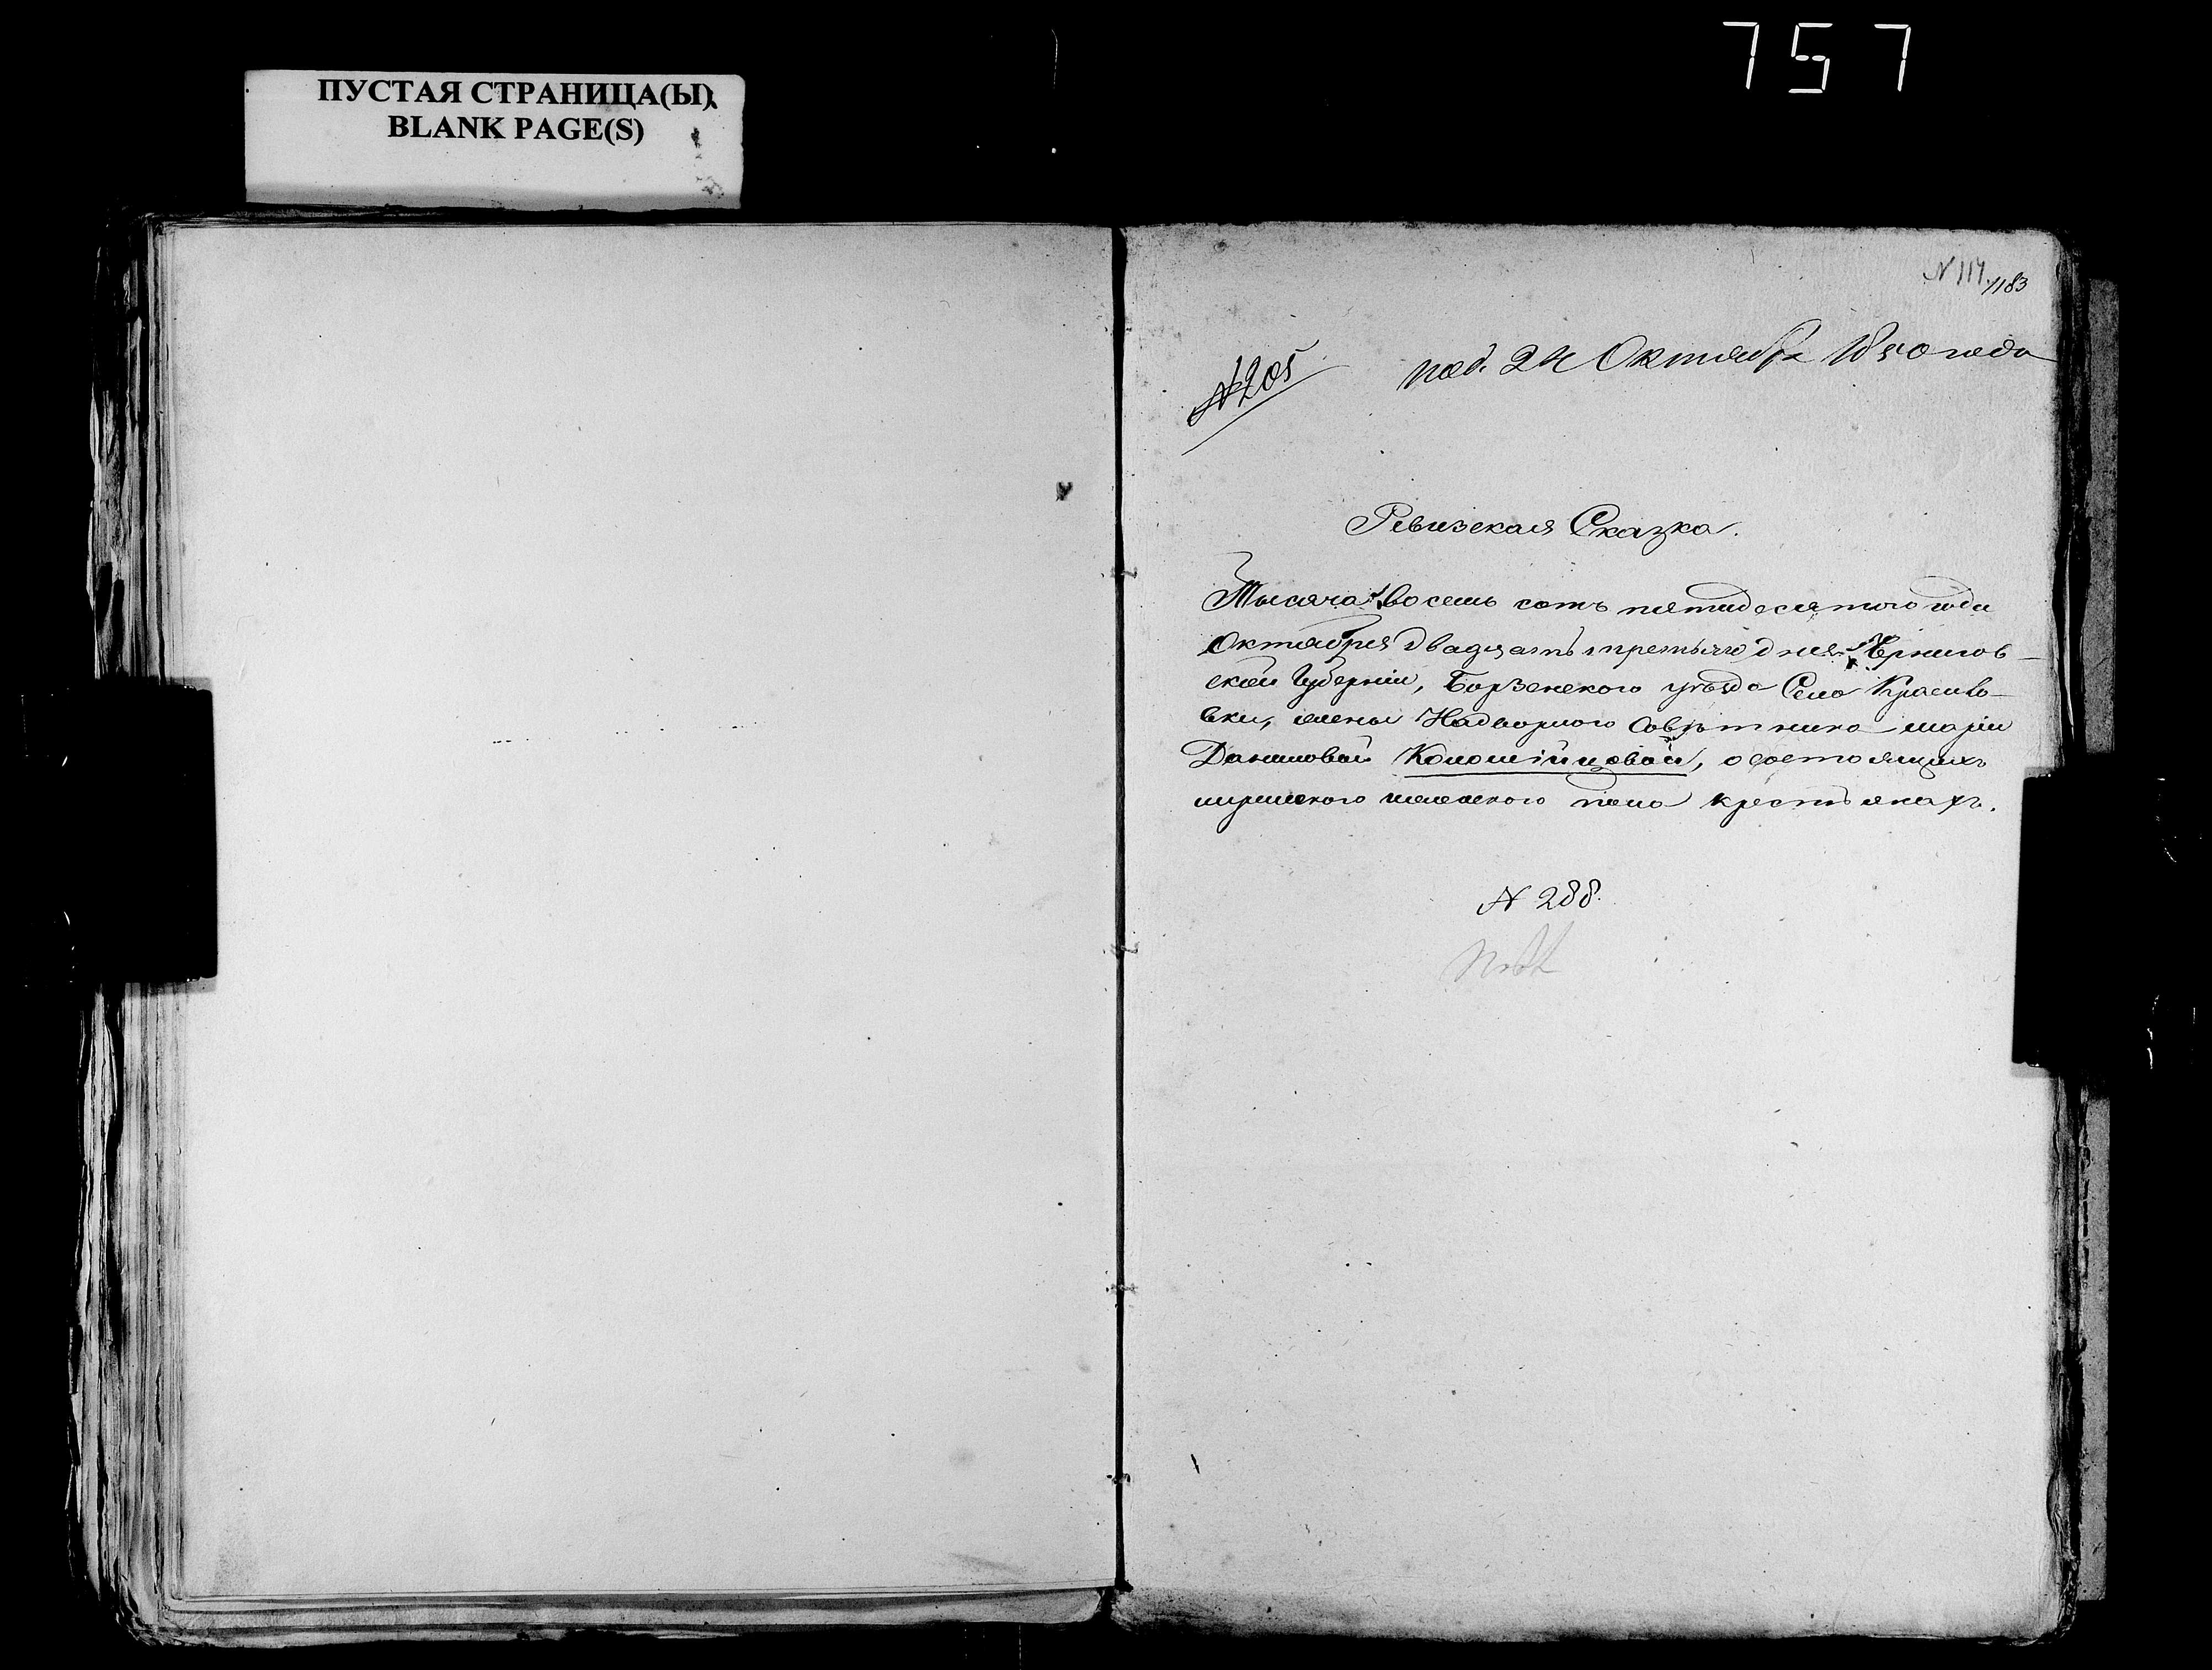 757
ПУСТАЯ СТРАНИЦА(Ы)
BLANK PAGE(S)
N 114 1183
№205
под. 24 Октября 1850 года
Ревизская Сказка.
Тысяча восемь сотъ пятидесятого года
Октября двадцать третьяго дня Чернигов-
ской Губерніи, Борзенского уѣзда Села Красило-
вки, жены Надворного Совѣтника Маріи
Даниловой Коломійцовой, о состоящихъ
мужеского женского пола крестьянахъ.
N 288.